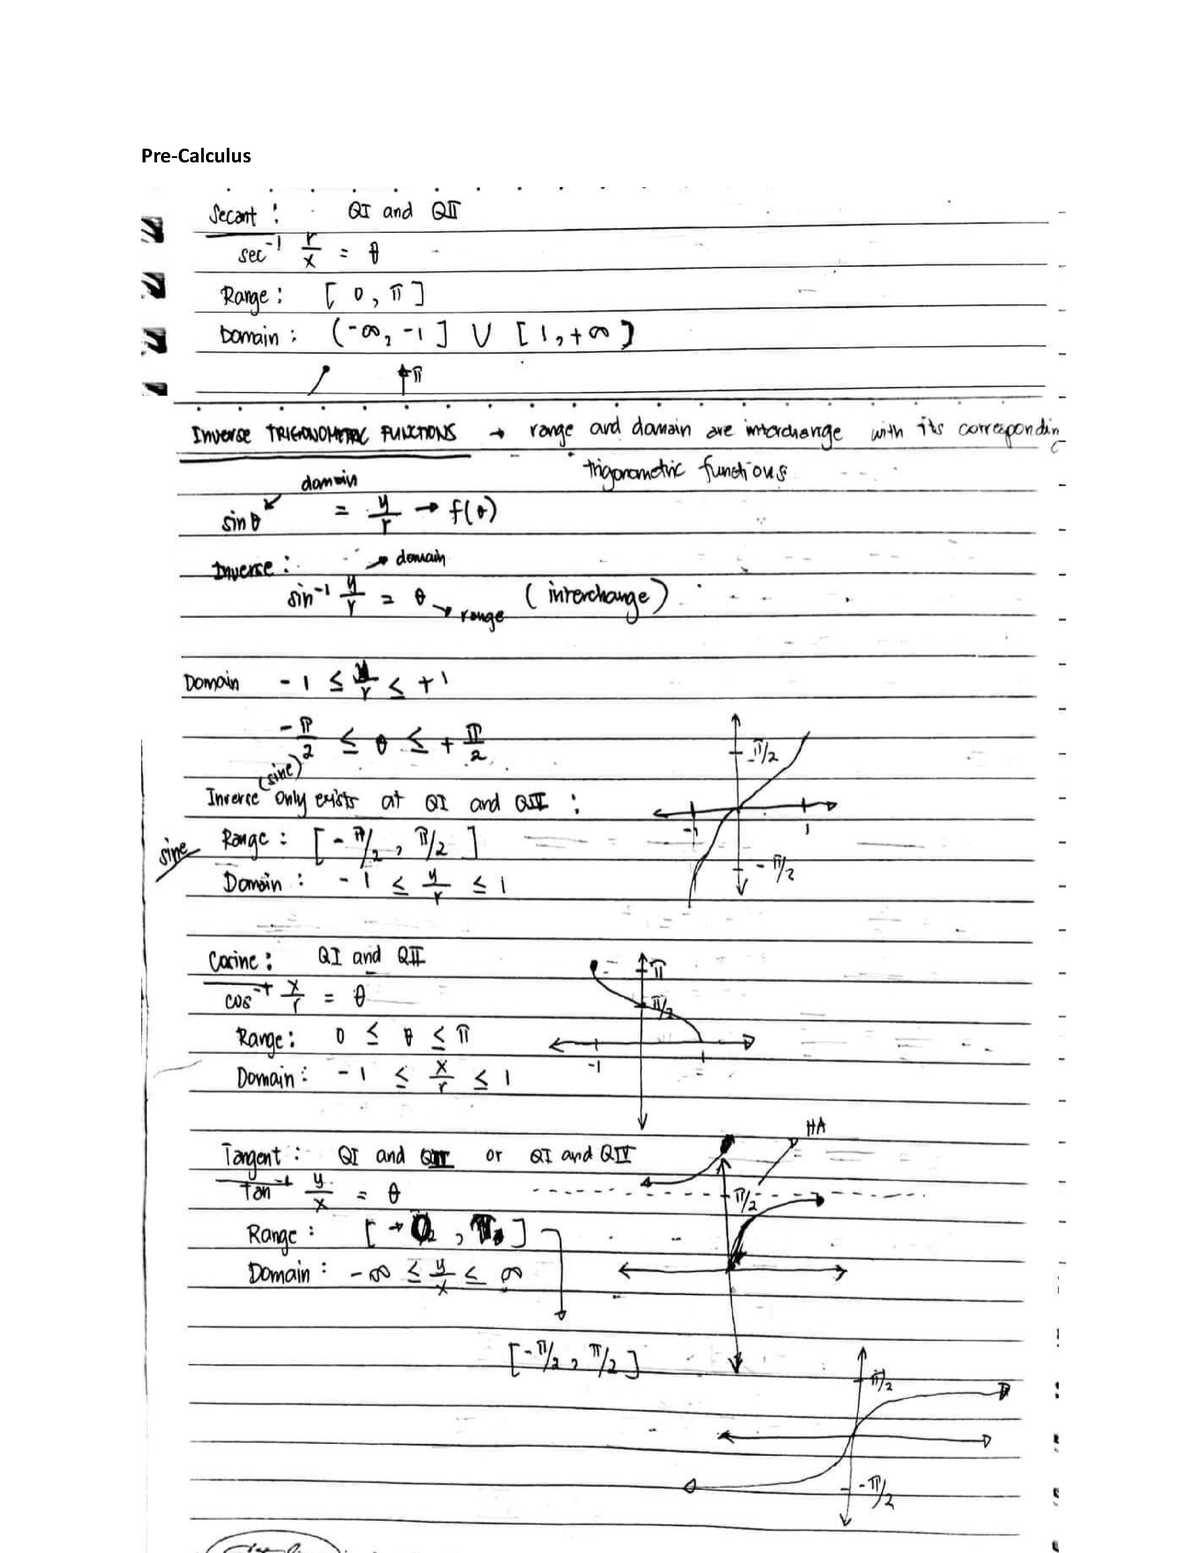 Pre-Calculus
Secant : QI and QII
sec⁻¹ r/x = θ
Range : [ 0 , π ]
Domain : (-∞, -1 ] ∪ [ 1, +∞ )
π
Inverse TRIGONOMETRIC FUNCTIONS → range and domain are interchange with its correspondin
trigonometric functions
domain
sin θ = y/r → f(θ)
Inverse : → domain
sin⁻¹ y/r = θ → range ( interchange )
Domain -1 ≤ y/r ≤ +1
-π/2 ≤ θ ≤ + π/2
π/2
(sine)
Inverse only exists at QI and QIV :
-1 1
sine
Range : [ -π/2 , π/2 ]
-π/2
Domain : -1 ≤ y/r ≤ 1
Cosine : QI and QII
π
cos⁻¹ x/r = θ
π/2
Range : 0 ≤ θ ≤ π
-1
Domain : -1 ≤ x/r ≤ 1
HA
Tangent : QI and or QI and QIV
tan⁻¹ y/x = θ
π/2
Range : [ , ]
Domain : -∞ ≤ y/x ≤ ∞
[ -π/2 , π/2 ]
π/2
-π/2